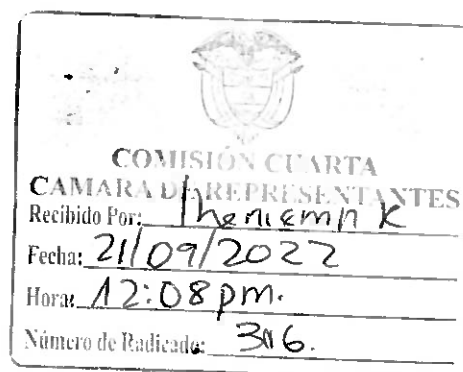 COMISIÓN CUARTA
CAMARA DE REPRESENTANTES
Recibido Por:
Fecha: 21/09/2022
Hora: 12:08 pm.
Número de Radicado: